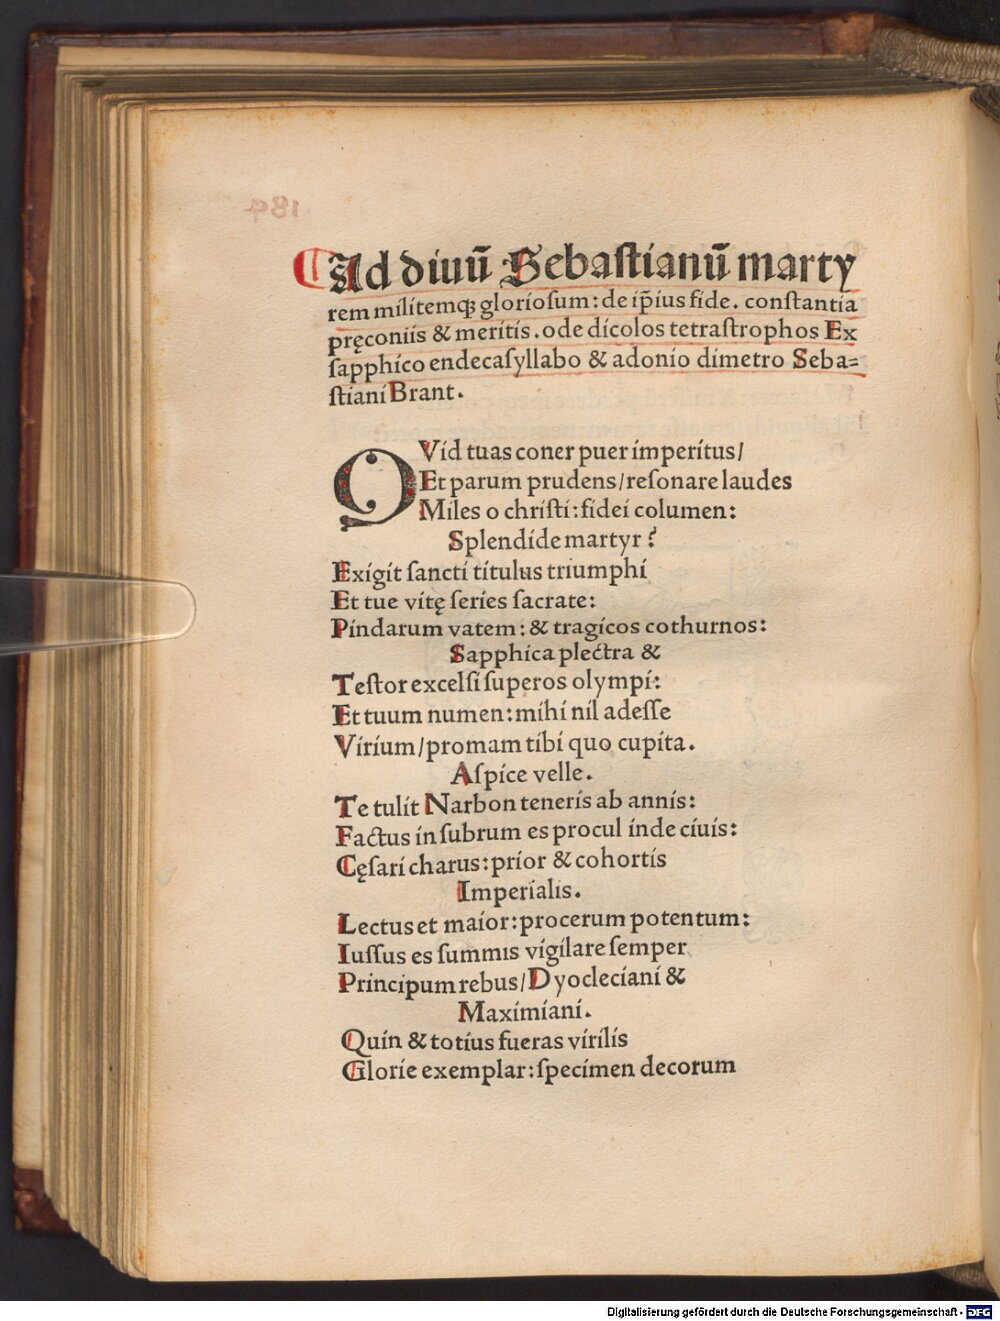 184
Ad diuū Sebastianū marty
rem militemqꝫ gloriosum: de ip̄ius fide. constantia
pręconiis & meritis. ode dicolos tetrastrophos Ex
sapphico endecasyllabo & adonio dimetro Seba=
stiani Brant.
QVid tuas coner puer imperitus/
Et parum prudens/resonare laudes
Miles o christi: fidei columen:
Splendide martyr?
Exigit sancti titulus triumphi
Et tue vitę series sacrate:
Pindarum vatem: & tragicos cothurnos:
Sapphica plectra &
Testor excelsi superos olympi:
Et tuum numen: mihi nil adesse
Virium/promam tibi quo cupita.
Aspice velle.
Te tulit Narbon teneris ab annis:
Factus insubrum es procul inde ciuis:
Cęsari charus: prior & cohortis
Imperialis.
Lectus et maior: procerum potentum:
Iussus es summis vigilare semper
Principum rebus/Dyocleciani &
Maximiani.
Quin & totius fueras virilis
Glorie exemplar: specimen decorum
Digitalisierung gefördert durch die Deutsche Forschungsgemeinschaft - DFG